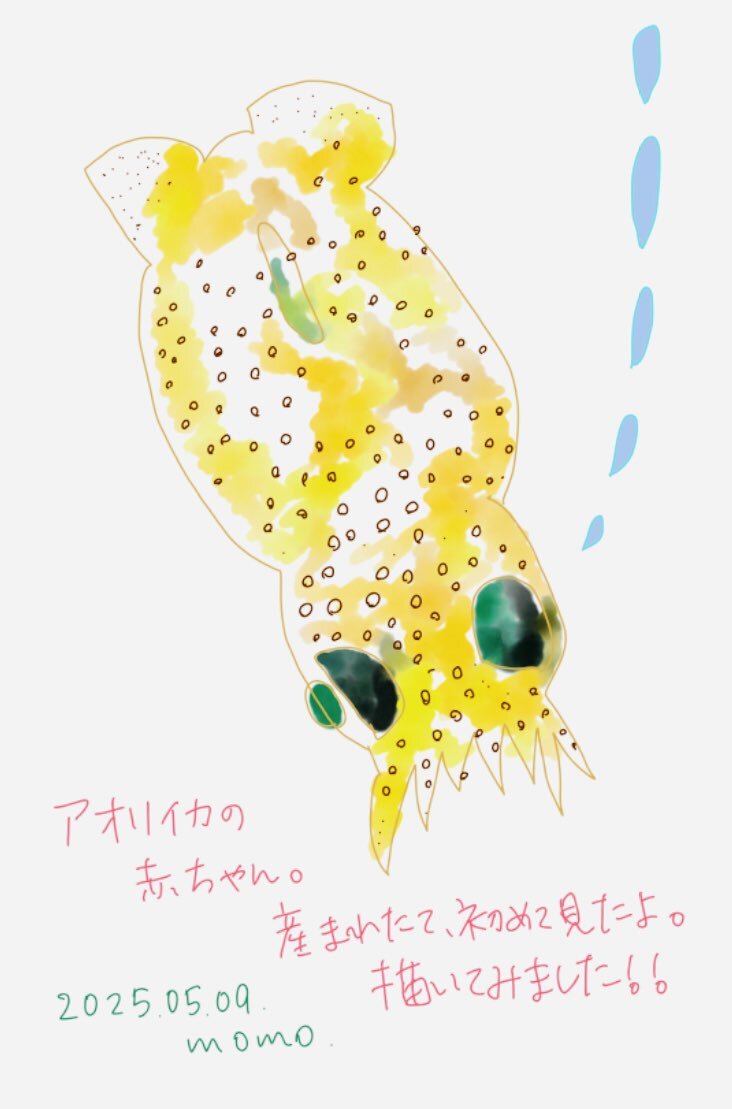 アオリイカの
赤ちゃん。
産まれたて、初めて見たよ。
描いてみました!!
2025.05.09.
momo.